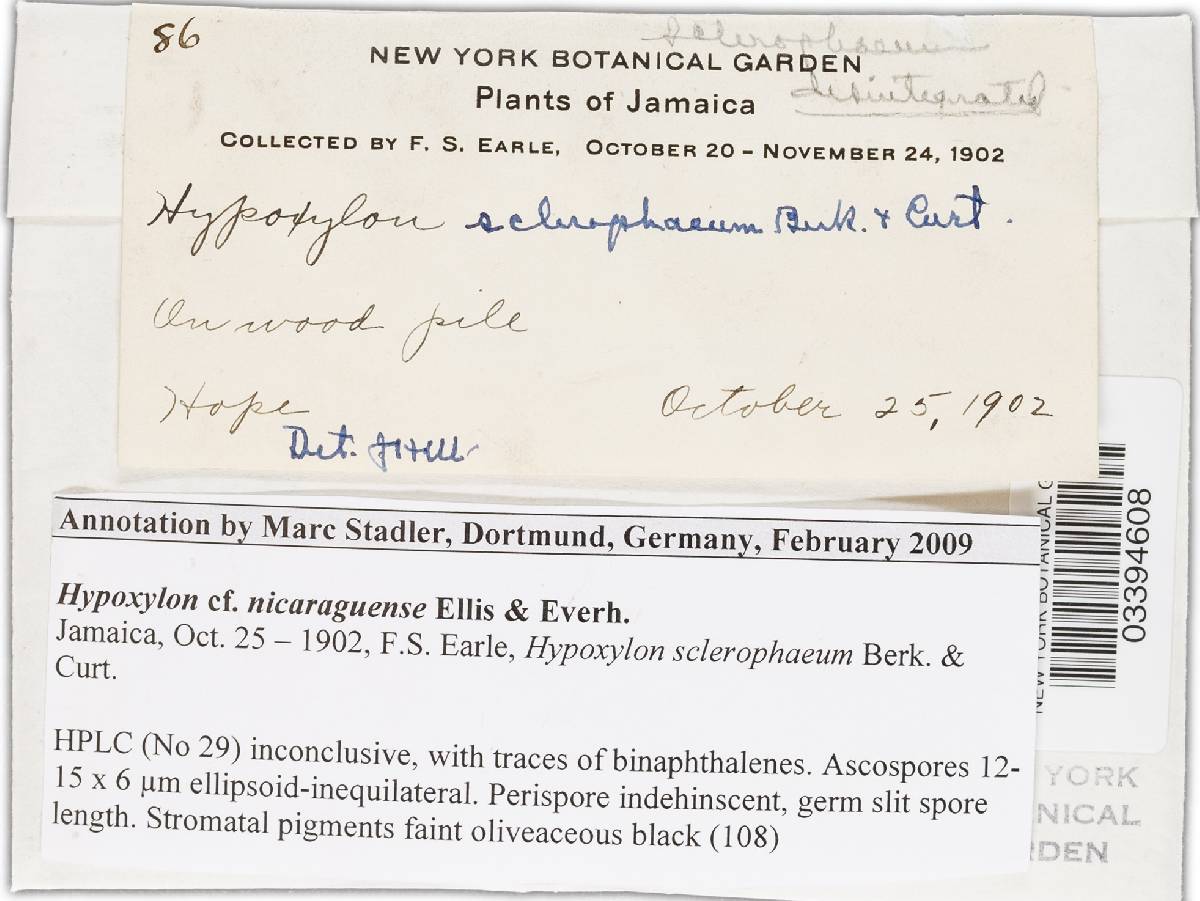 86
sclerophaeum
disintegrated
NEW YORK BOTANICAL GARDEN
Plants of Jamaica
COLLECTED BY F. S. EARLE, OCTOBER 20 – NOVEMBER 24, 1902
Hypoxylon sclerophaeum Berk. & Curt.
On wood pile
Hope October 25, 1902
Det.
Annotation by Marc Stadler, Dortmund, Germany, February 2009
Hypoxylon cf. nicaraguense Ellis & Everh.
Jamaica, Oct. 25 – 1902, F.S. Earle, Hypoxylon sclerophaeum Berk. &
Curt.
HPLC (No 29) inconclusive, with traces of binaphthalenes. Ascospores 12-
15 x 6 µm ellipsoid-inequilateral. Perispore indehinscent, germ slit spore
length. Stromatal pigments faint oliveaceous black (108)
NEW YORK BOTANICAL G
03394608
YORK
NICAL
DEN